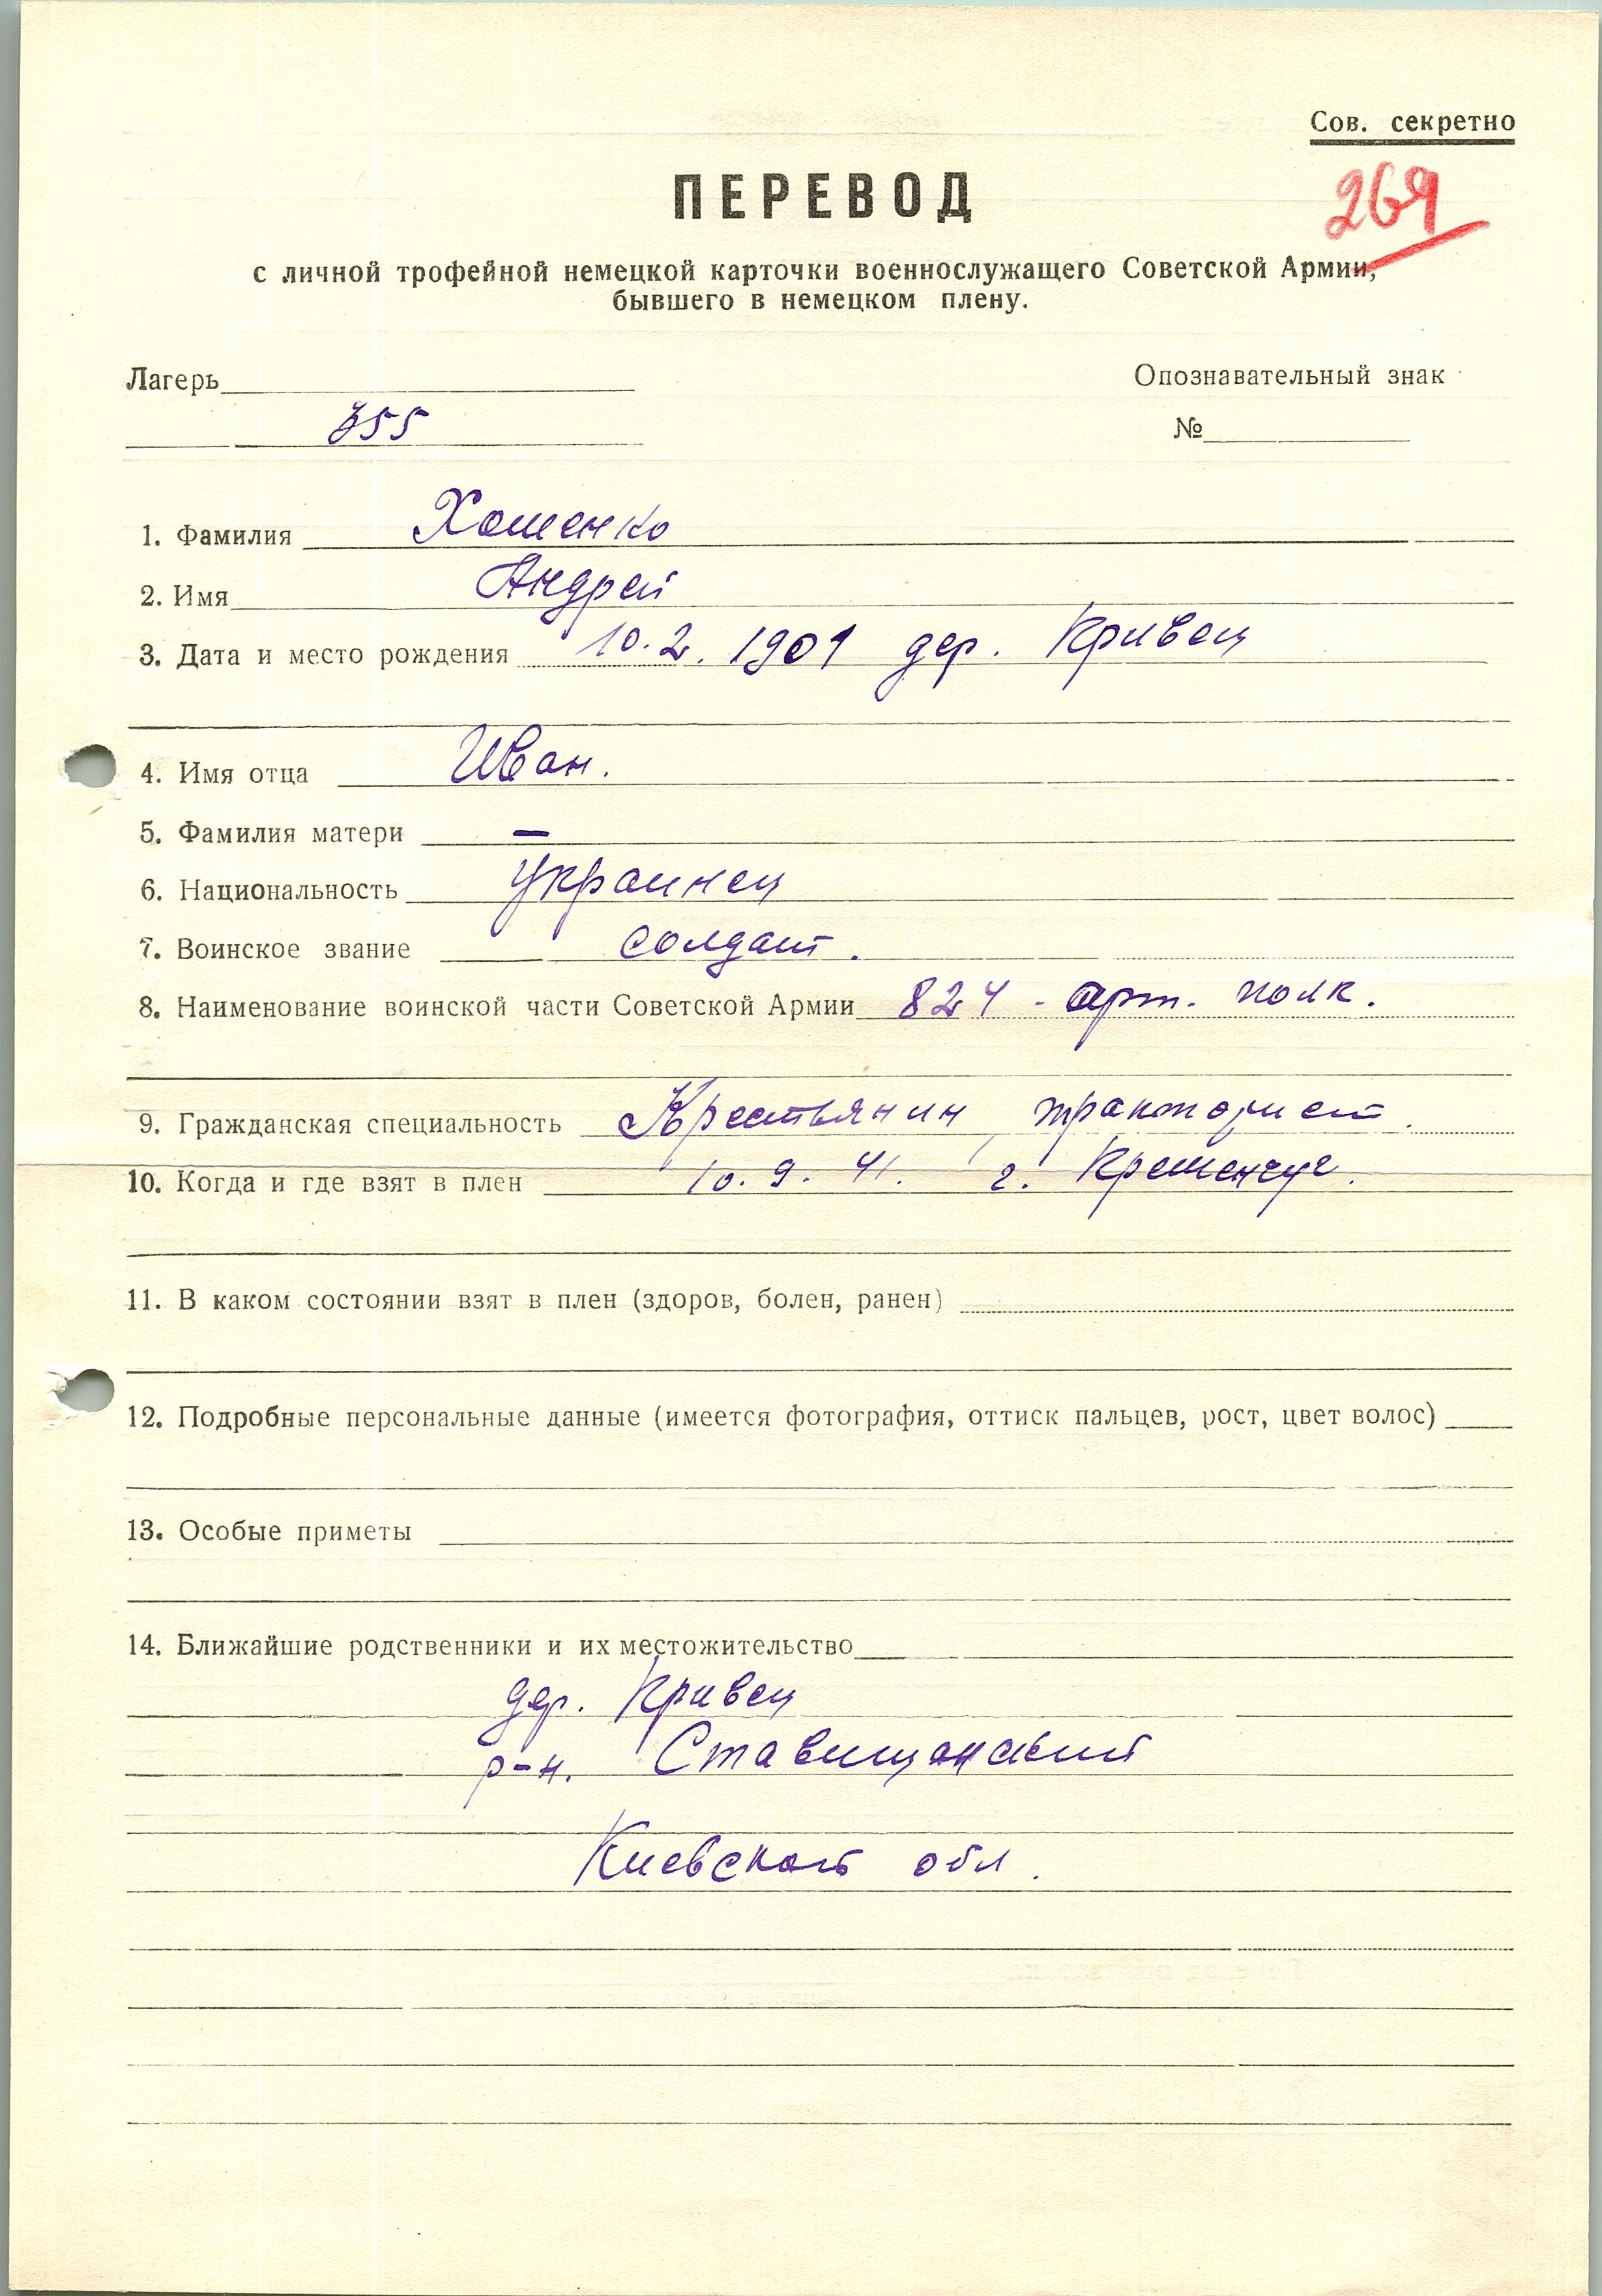 Сов. секретно
ПЕРЕВОД
269
с личной трофейной немецкой карточки военнослужащего Советской Армии,
бывшего в немецком плену.
Лагерь
Опознавательный знак
355
№
1. Фамилия Хоменко
2. Имя Андрей
3. Дата и место рождения 10.2.1901 дер. Кривец
4. Имя отца Иван.
5. Фамилия матери —
6. Национальность украинец
7. Воинское звание солдат.
8. Наименование воинской части Советской Армии 824 - арт. полк.
9. Гражданская специальность Крестьянин, тракторист.
10. Когда и где взят в плен 10.9.41. г. Кременчуг.
11. В каком состоянии взят в плен (здоров, болен, ранен)
12. Подробные персональные данные (имеется фотография, оттиск пальцев, рост, цвет волос)
13. Особые приметы
14. Ближайшие родственники и их местожительство
дер. Кривец
р-н. Ставищанский
Киевской обл.